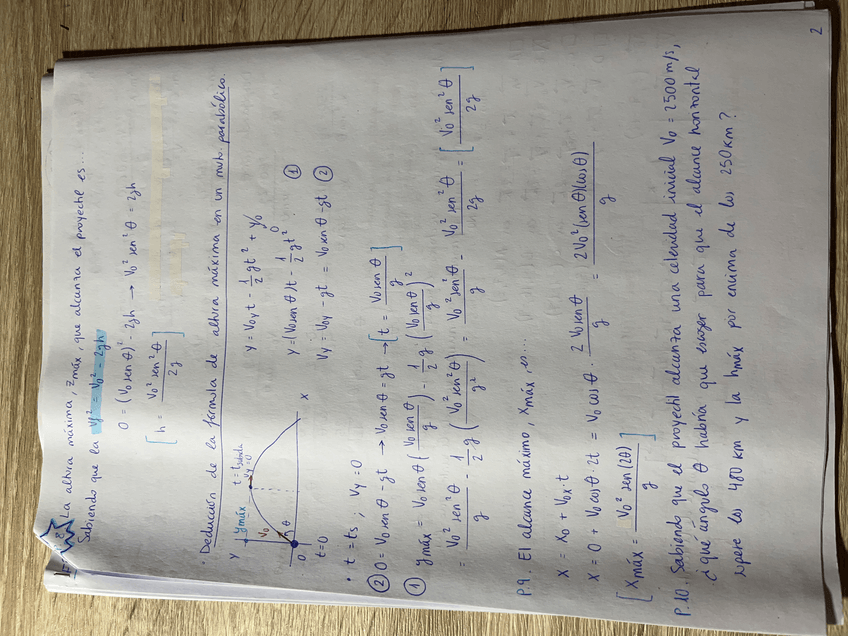 8. La altura máxima, zmáx, que alcanza el proyectil es...
Sabiendo que la Vf² = V0² - 2gh
0 = (V0 sen θ)² - 2gh → V0² sen² θ = 2gh
[h = V0² sen² θ / 2g]
· Deducción de la fórmula de altura máxima en un mvto parabólico.
Y
ymáx
t = tsubida
Vy = 0
V0
θ
0
X
t=0
y = V0y t - 1/2 gt² + y0
0
y = (V0 sen θ)t - 1/2 gt². ①
Vy = V0y - gt = V0 sen θ - gt ②
· t = ts ; Vy = 0
② 0 = V0 sen θ - gt → V0 sen θ = gt → [t = V0 sen θ / g]
① ymáx = V0 sen θ (V0 sen θ / g) - 1/2 g (V0 sen θ / g)²
= V0² sen² θ / g - 1/2 g (V0² sen² θ / g²) = V0² sen² θ / g - V0² sen² θ / 2g = [V0² sen² θ / 2g]
P.9. El alcance máximo, xmáx, es...
X = X0 + V0x · t
X = 0 + V0 cos θ · 2t = V0 cos θ · 2 V0 sen θ / g = 2V0² (sen θ)(cos θ) / g
[Xmáx = V0² sen (2θ) / g]
P.10. Sabiendo que el proyectil alcanza una celeridad inicial V0 = 2500 m/s,
¿qué ángulo θ habría que escoger para que el alcance horizontal
supere los 480 km y la hmáx por encima de los 250 km?
2